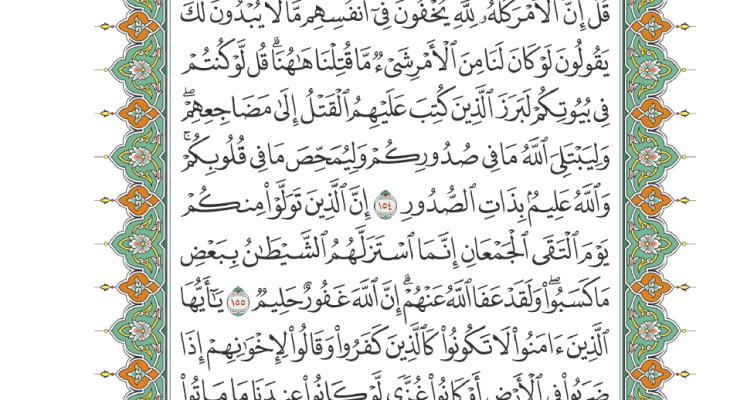 قُلْ إِنَّ ٱلْأَمْرَ كُلَّهُۥ لِلَّهِ يُخْفُونَ فِىٓ أَنفُسِهِم مَّا لَا يُبْدُونَ لَكَ
يَقُولُونَ لَوْ كَانَ لَنَا مِنَ ٱلْأَمْرِ شَىْءٌ مَّا قُتِلْنَا هَٰهُنَا ۗ قُل لَّوْ كُنتُمْ
فِى بُيُوتِكُمْ لَبَرَزَ ٱلَّذِينَ كُتِبَ عَلَيْهِمُ ٱلْقَتْلُ إِلَىٰ مَضَاجِعِهِمْ ۖ
وَلِيَبْتَلِىَ ٱللَّهُ مَا فِى صُدُورِكُمْ وَلِيُمَحِّصَ مَا فِى قُلُوبِكُمْ ۚ
وَٱللَّهُ عَلِيمٌۢ بِذَاتِ ٱلصُّدُورِ ١٥٤ إِنَّ ٱلَّذِينَ تَوَلَّوْا۟ مِنكُمْ
يَوْمَ ٱلْتَقَى ٱلْجَمْعَانِ إِنَّمَا ٱسْتَزَلَّهُمُ ٱلشَّيْطَٰنُ بِبَعْضِ
مَا كَسَبُوا۟ ۖ وَلَقَدْ عَفَا ٱللَّهُ عَنْهُمْ ۗ إِنَّ ٱللَّهَ غَفُورٌ حَلِيمٌ ١٥٥ يَٰٓأَيُّهَا
ٱلَّذِينَ ءَامَنُوا۟ لَا تَكُونُوا۟ كَٱلَّذِينَ كَفَرُوا۟ وَقَالُوا۟ لِإِخْوَٰنِهِمْ إِذَا
ضَرَبُوا۟ فِى ٱلْأَرْضِ أَوْ كَانُوا۟ غُزًّى لَّوْ كَانُوا۟ عِندَنَا مَا مَاتُوا۟